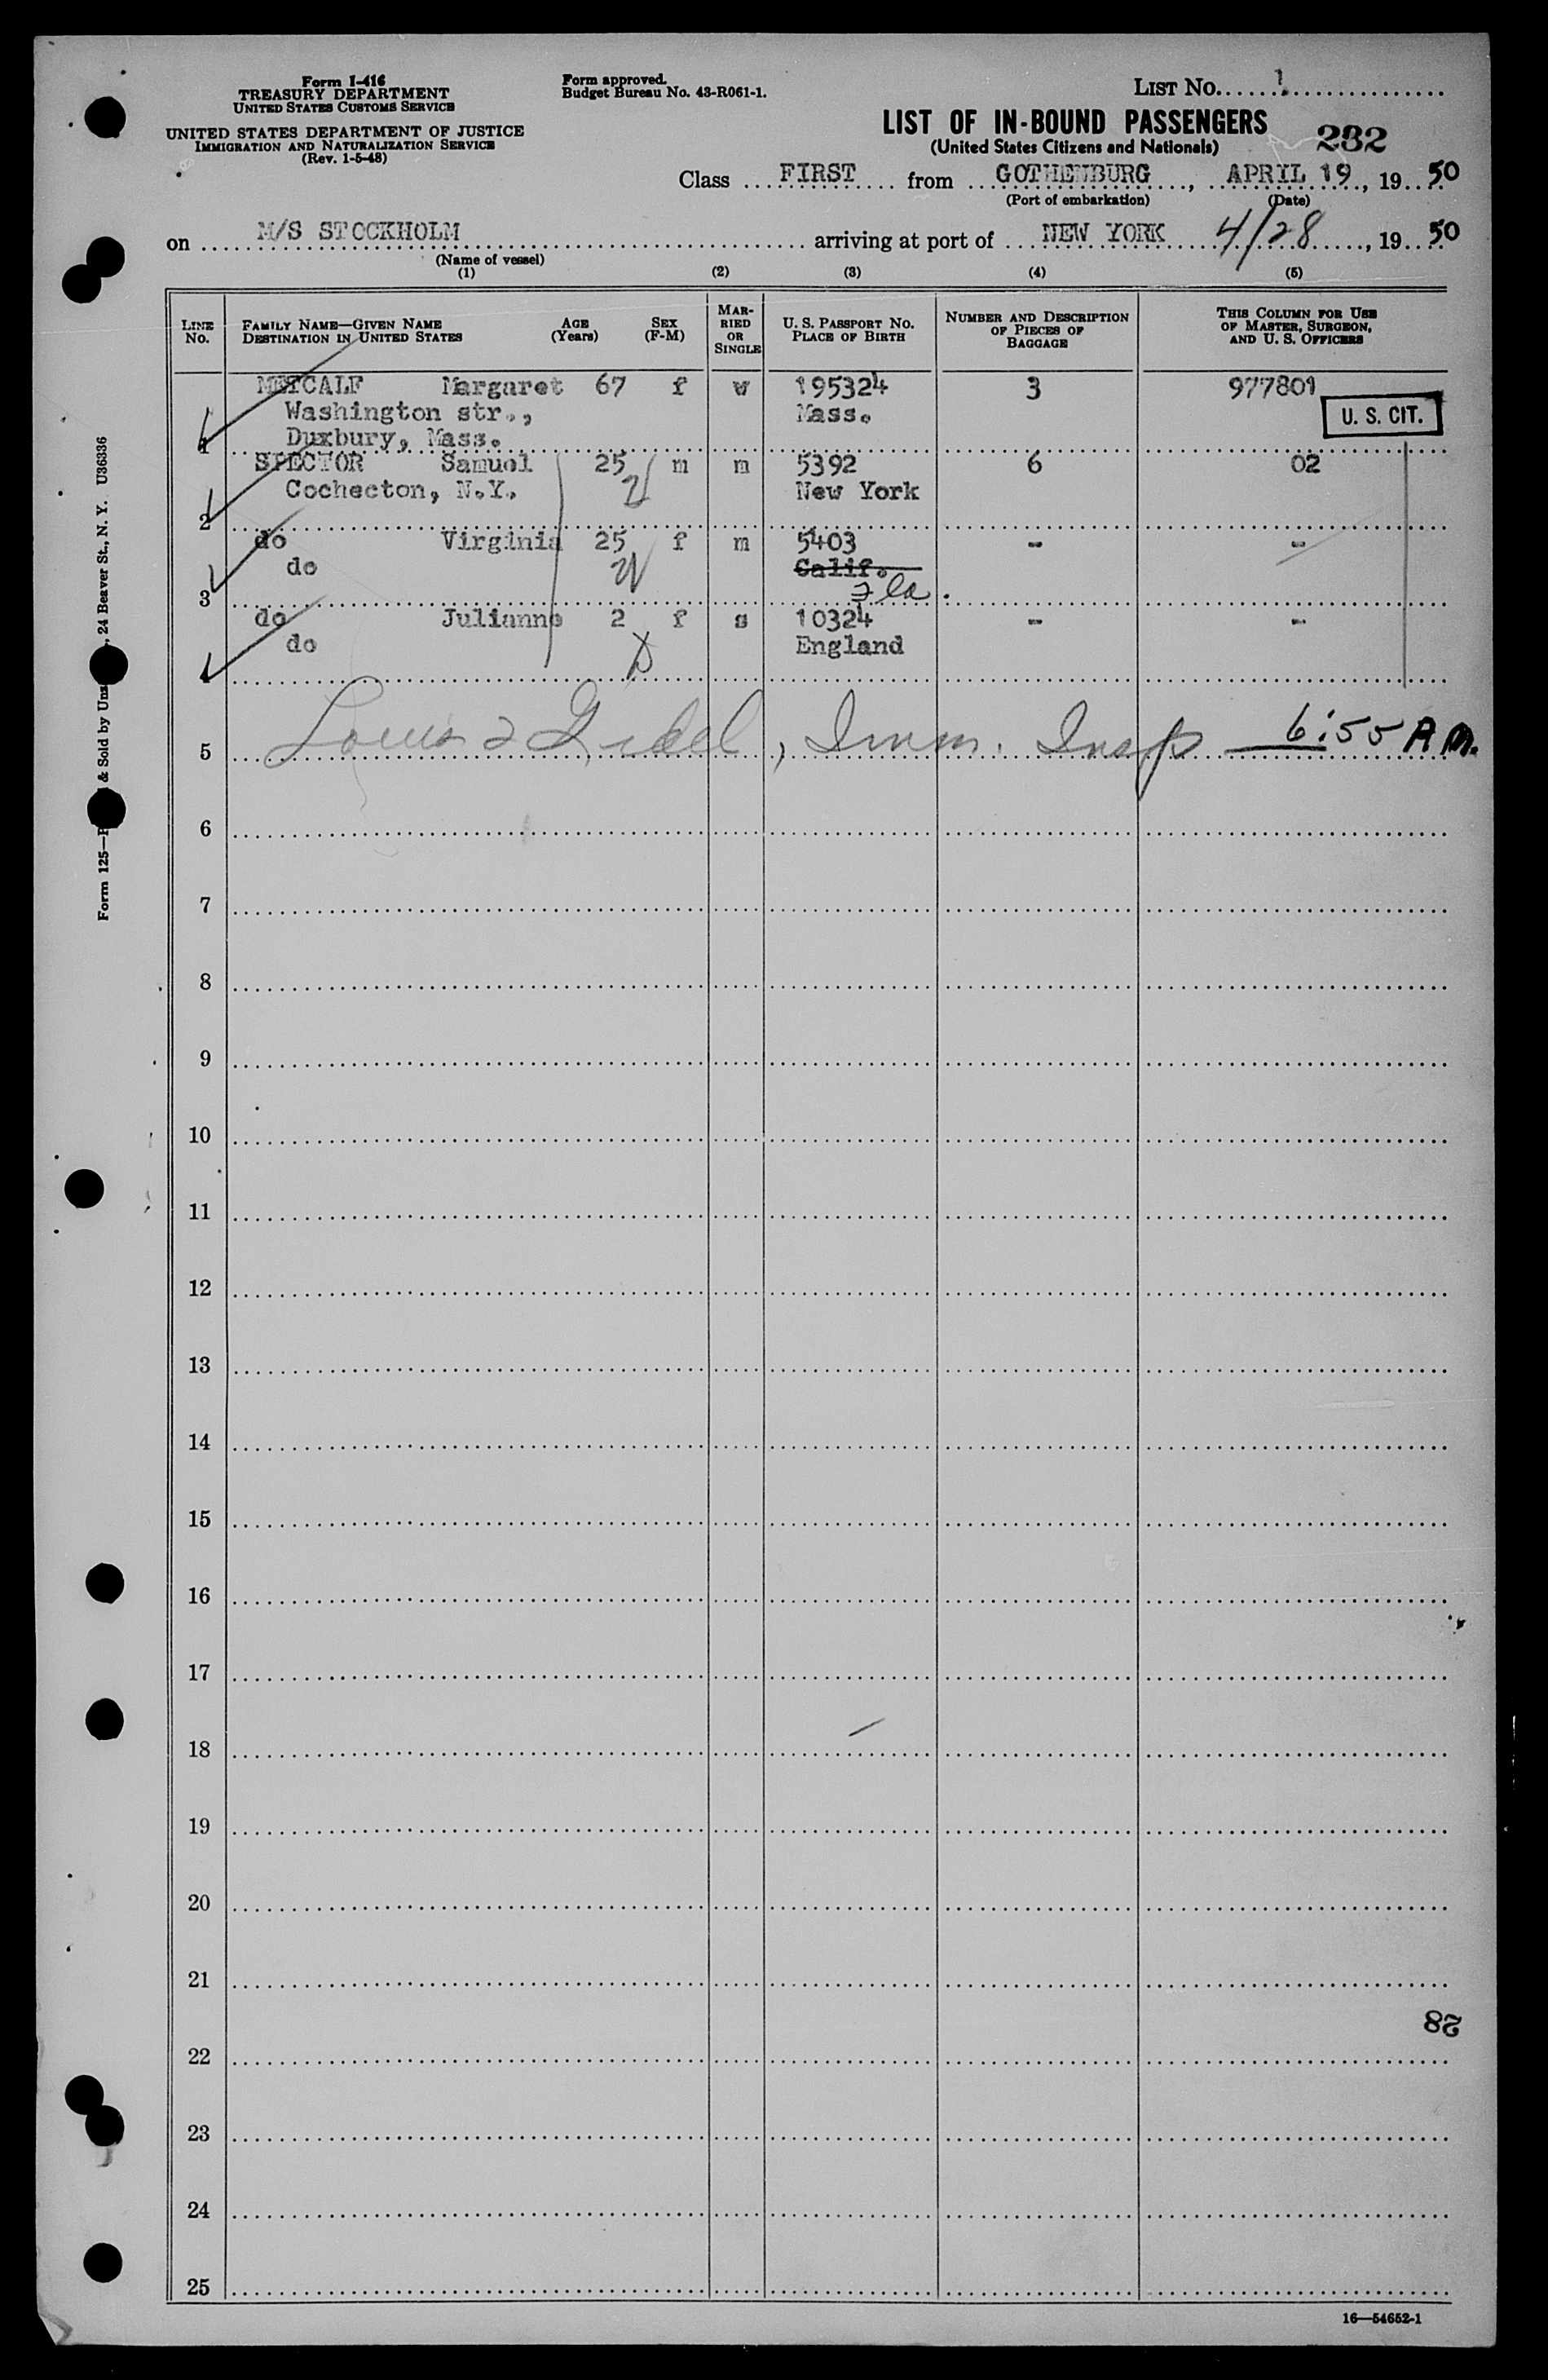 Form I-416
TREASURY DEPARTMENT
UNITED STATES CUSTOMS SERVICE
UNITED STATES DEPARTMENT OF JUSTICE
IMMIGRATION AND NATURALIZATION SERVICE
(Rev. 1-5-48)
Form approved.
Budget Bureau No. 43-R061-1.
LIST No. 1
LIST OF IN-BOUND PASSENGERS
(United States Citizens and Nationals)
232
Class FIRST from GOTHENBURG, APRIL 19, 1950
(Port of embarkation) (Date)
on M/S STOCKHOLM arriving at port of NEW YORK 4/28, 1950
(Name of vessel)
(1) (2) (3) (4) (5)
LINE No. FAMILY NAME—GIVEN NAME DESTINATION IN UNITED STATES AGE (Years) SEX (F-M) MARRIED OR SINGLE U. S. PASSPORT No. PLACE OF BIRTH NUMBER AND DESCRIPTION OF PIECES OF BAGGAGE THIS COLUMN FOR USE OF MASTER, SURGEON, AND U. S. OFFICERS
METCALF Margaret 67 f w 195324 3 977801
Washington str., Mass. U. S. CIT.
1 Duxbury, Mass.
SPECTOR Samuel 25 m m 5392 6 02
Cochecton, N.Y. New York
2
do Virginia 25 f m 5403 - -
do Calif.
3 Fla.
do Julianne 2 f s 10324 - -
do England
4
5 Louis, Imm. Insp 6:55 A.M.
6
7
8
9
10
11
12
13
14
15
16
17
18
19
20
21
28
22
23
24
25
16—54652-1
Form 125— & Sold by Unz, 24 Beaver St., N. Y. U36336